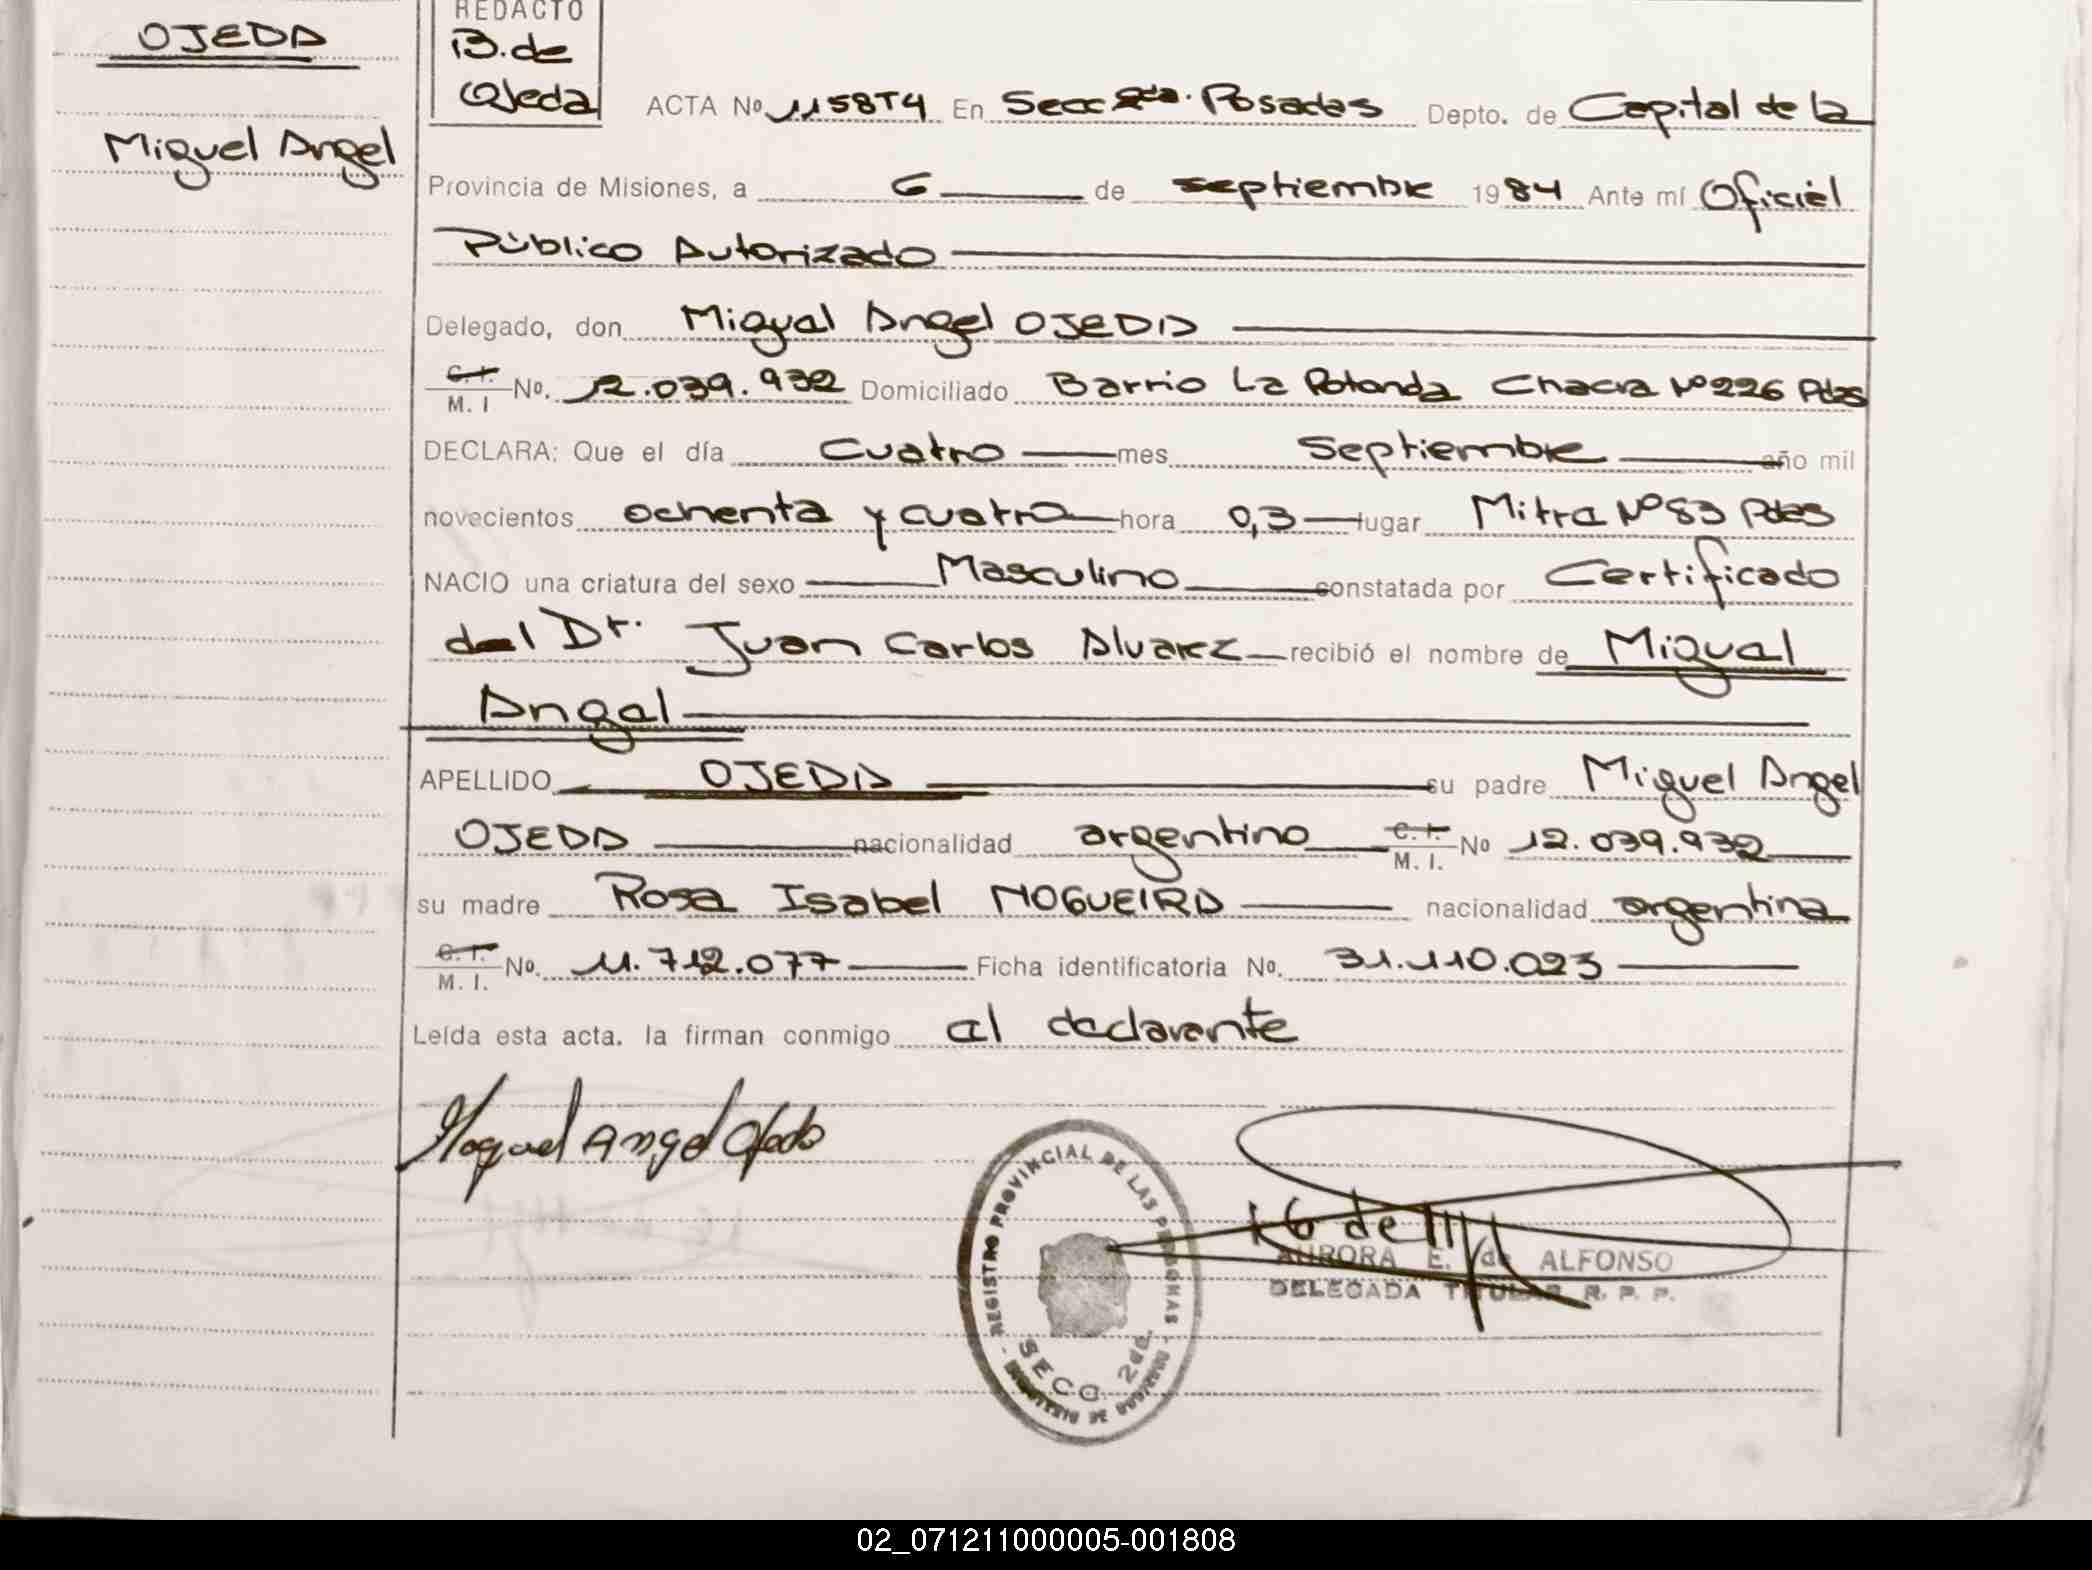 OJEDA
Miguel Angel
REDACTO
B. de
Ojeda
ACTA No 1158T4 En Secc 2da. Posadas Depto. de Capital de la
Provincia de Misiones, a 6 de septiembre 1984 Ante mí Oficial
Público Autorizado
Delegado, don Miguel Angel OJEDA
C. I. M. I No. 12.039.932 Domiciliado Barrio La Rotonda Chacra Nº 226 Pdas
DECLARA: Que el día Cuatro mes Septiembre año mil
novecientos ochenta y cuatro hora 0,3 lugar Mitra Nº 83 Pdas
NACIO una criatura del sexo Masculino constatada por Certificado
del Dr. Juan Carlos Alvarez recibió el nombre de Miguel
Angel
APELLIDO OJEDA su padre Miguel Angel
OJEDA nacionalidad argentino C. I. M. I. No 12.039.932
su madre Rosa Isabel NOGUEIRA nacionalidad argentina
C. I. M. I. No. 11.712.077 Ficha identificatoria No. 31.110.023
Leída esta acta. la firman conmigo el declarante
Miguel Angel Ojeda
REGISTRO PROVINCIAL DE LAS PERSONAS
SECC. 2da.
MINISTERIO DE GOBIERNO
AURORA E. de ALFONSO
DELEGADA TITULAR R. P. P.
02_071211000005-001808